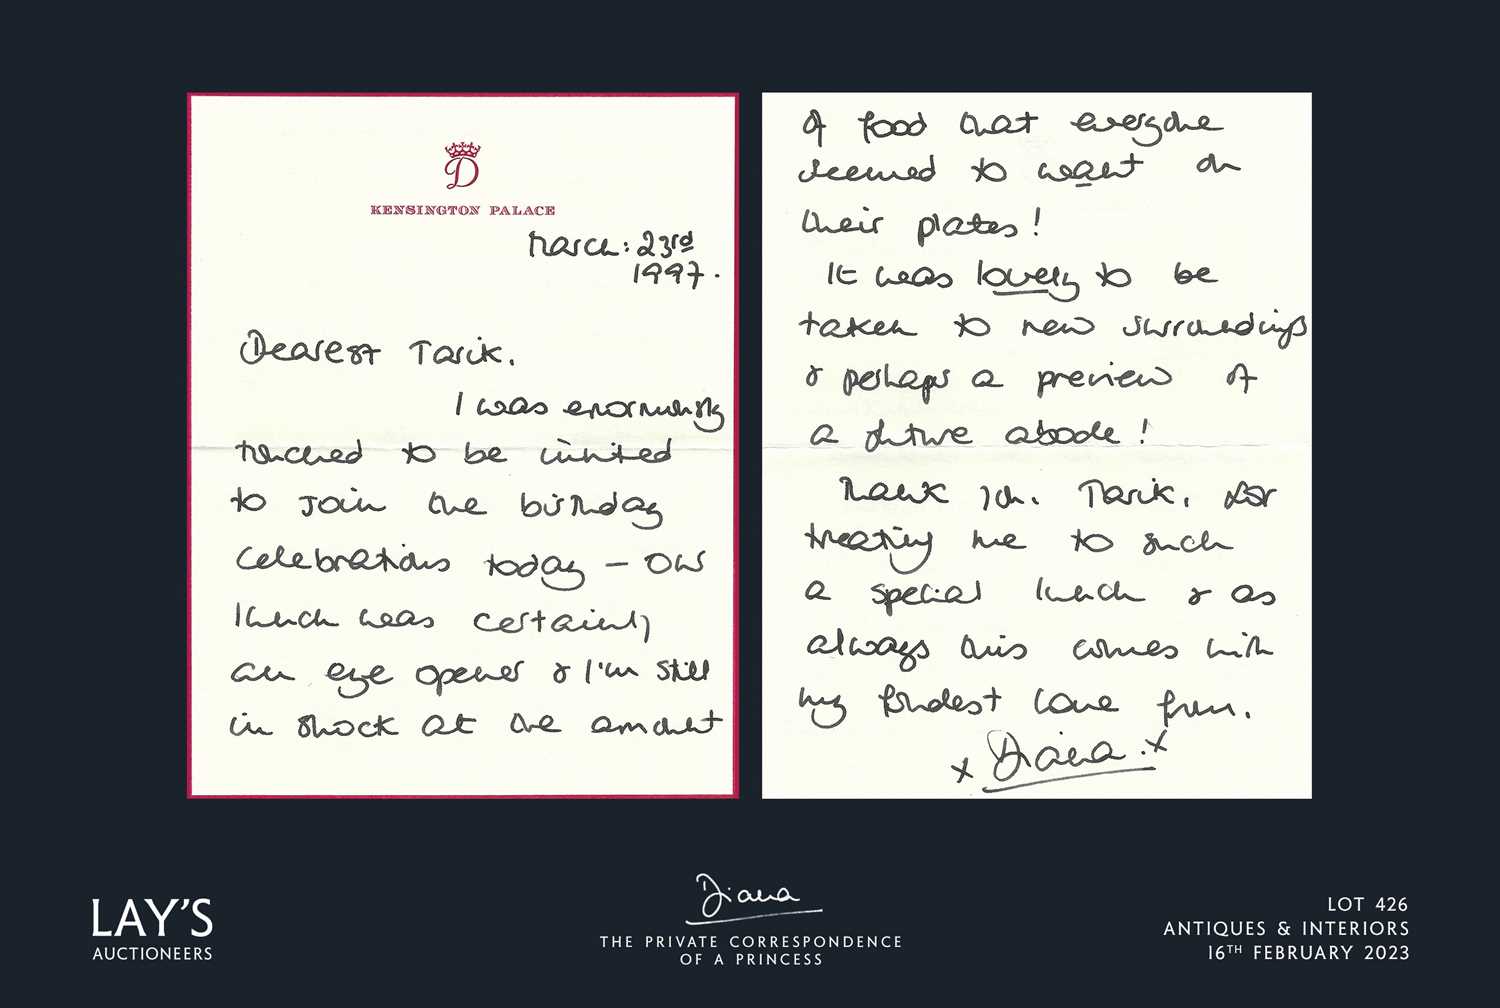 D
KENSINGTON PALACE
March: 23rd
1997.
Dearest Tarik.
I was enormously
touched to be invited
to join the birthday
celebrations today – our
lunch was certainly
an eye opener & I'm still
in shock at the amount
of food that everyone
seemed to want on
their plates!
It was lovely to be
taken to new surroundings
& perhaps a preview of
a future abode!
Thank you. Tarik. for
treating me to such
a special lunch & as
always this comes with
my fondest love from.
x Diana. x
LAY'S
AUCTIONEERS
Diana
THE PRIVATE CORRESPONDENCE
OF A PRINCESS
LOT 426
ANTIQUES & INTERIORS
16TH FEBRUARY 2023